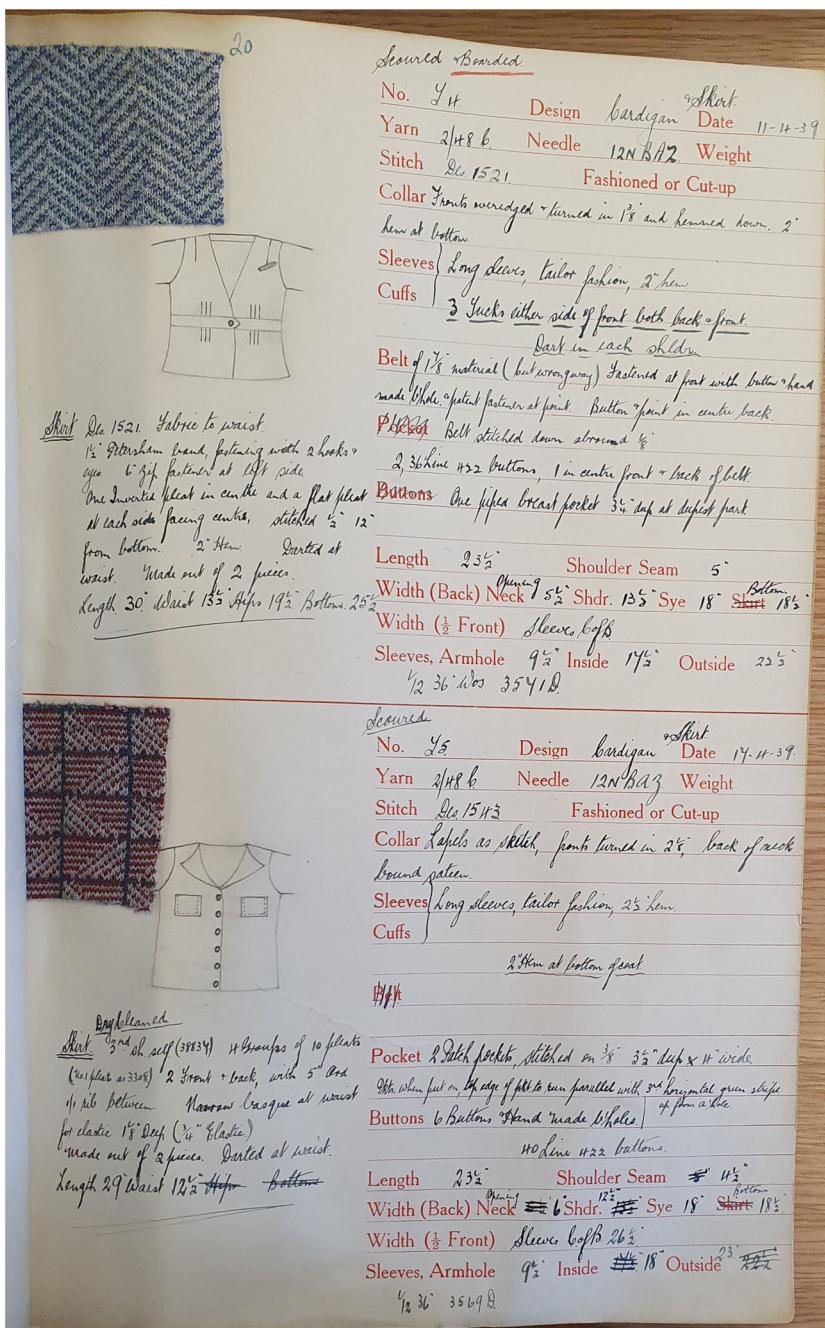 20
Scoured & Boarded.
No. Y4 Design Cardigan & Skirt. Date 11-4-39
Yarn 2/48 C. Needle 12N BAZ Weight
Stitch Des. 1521. Fashioned or Cut-up
Collar Fronts overedged & turned in 1 3/8" and hemmed down. 2"
hem at bottom.
Sleeves Long sleeves, tailor fashion, 2" hem
Cuffs
3 Tucks either side of front both back & front.
Dart in each shldrn
Belt of 1 7/8" material (but wrong way) Fastened at front with button & hand
made b'hole. & patent fastener at point. Button & point in centre back.
Pocket Belt stitched down around 1/8"
2, 36 Line 422 buttons, 1 in centre front & back of belt.
Buttons One piped breast pocket 3 1/4" deep at deepest part.
Length 23 1/2" Shoulder Seam 5"
Width (Back) Neck Opening 5 1/2" Shdr. 13 1/2" Sye 18" Skirt Bottom 18 1/2"
Width (1/2 Front) Sleeves C of B
Sleeves, Armhole 9 1/2" Inside 17 1/2" Outside 22 1/2"
1/12 36" Wos 3541D.
Skirt Des. 1521. Fabric to waist.
1 1/2" Petersham band, fastening with 2 hooks &
eyes 6" Zip fastener at left side
One Inverted pleat in centre and a flat pleat
at each side facing centre, stitched 1/2" 12"
from bottom. 2" Hem. Darted at
waist. Made out of 2 pieces.
Length. 30" Waist 13 1/2" Hips 19 1/2" Bottoms. 25 1/2"
Scoured
No. Y5 Design Cardigan & Skirt. Date 17-4-39.
Yarn 2/48 C Needle 12N BAZ Weight
Stitch Des. 1543 Fashioned or Cut-up
Collar Lapels as sketch, fronts turned in 2 1/8", back of neck
bound sateen.
Sleeves Long sleeves, tailor fashion, 2 1/2" hem.
Cuffs
2" Hem at bottom of coat
Belt
Pocket 2 Patch pockets, stitched on 3/8" 3 1/2" deep x 4" wide
when put on, top edge of pkt to run parallel with 3rd horizontal green stripe
up from a'hole.
Buttons 6 Buttons & Hand made b'holes.
40 Line 422 buttons.
Length 23 1/2" Shoulder Seam 4 1/2"
Width (Back) Neck Opening 6" Shdr. 12 1/2" Sye 18" Skirt Bottom 18 1/2"
Width (1/2 Front) Sleeves C of B 26 1/2"
Sleeves, Armhole 9 1/2" Inside 18" Outside 23"
1/12 36" 3569D.
Dry Cleaned
Skirt. 3rd sh self (38834) 4 Groups of 10 pleats
(no 1 pleats as 3308) 2 Front & back, with 5" and
rib between Narrow basque at waist
for elastic 1 1/8" Deep (3/4" Elastic)
made out of 2 pieces. Darted at waist.
Length 29" Waist 12 1/2" Hips Bottoms